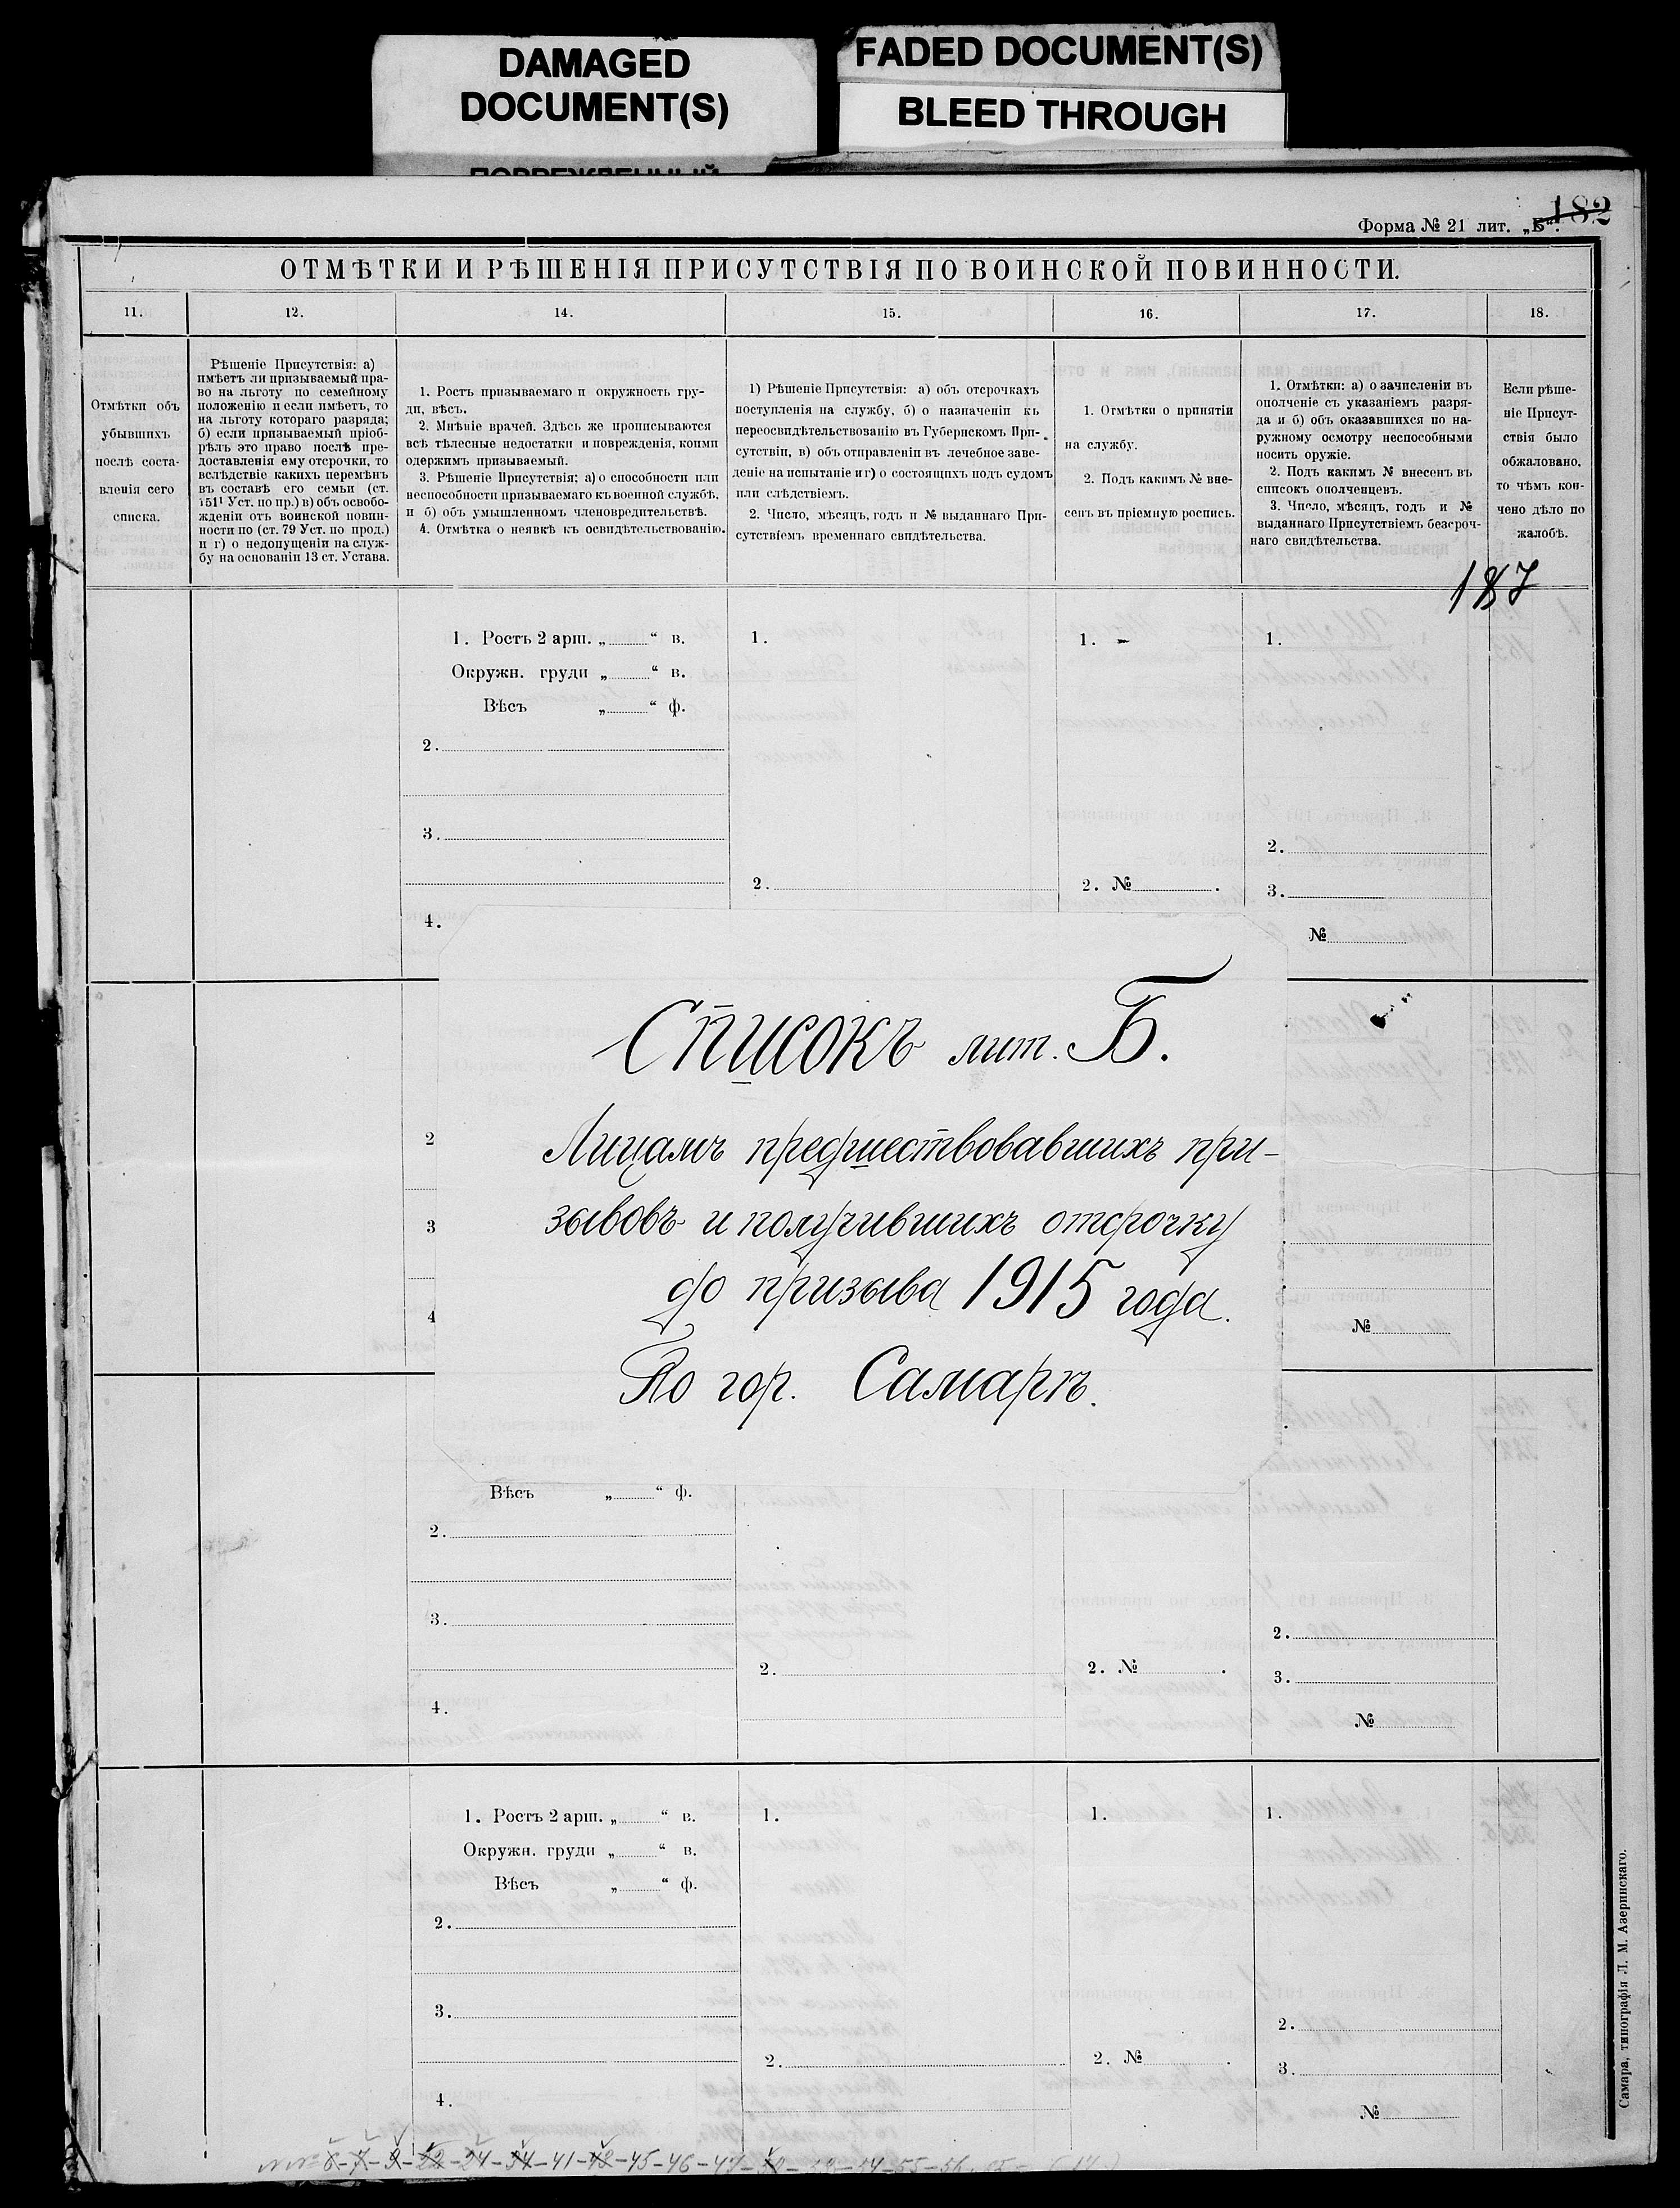 DAMAGED
DOCUMENT(S)
FADED DOCUMENT(S)
BLEED THROUGH
182
Форма № 21 лит. „Б“.
ОТМѢТКИ И РѢШЕНІЯ ПРИСУТСТВІЯ ПО ВОИНСКОЙ ПОВИННОСТИ.
11. 12. 14. 15. 16. 17. 18.
Отмѣтки объ
убывшихъ
послѣ соста-
вленія сего
списка.
Рѣшеніе Присутствія: а)
имѣетъ ли призываемый пра-
во на льготу по семейному
положенію и если имѣетъ, то
на льготу котораго разряда;
б) если призываемый пріоб-
рѣлъ это право послѣ пре-
доставленія ему отсрочки, то
вслѣдствіе какихъ перемѣнъ
въ составѣ его семьи (ст.
151¹ Уст. по пр.) в) объ освобо-
жденіи отъ воинской повин-
ности по (ст. 79 Уст. по прод.)
и г) о недопущеніи на служ-
бу на основаніи 13 ст. Устава.
1. Ростъ призываемаго и окружность гру-
ди, вѣсъ.
2. Мнѣніе врачей. Здѣсь же прописываются
всѣ тѣлесные недостатки и поврежденія, коими
одержимъ призываемый.
3. Рѣшеніе Присутствія: а) о способности или
неспособности призываемаго къ военной службѣ,
и б) объ умышленномъ членовредительствѣ.
4. Отмѣтка о неявкѣ къ освидѣтельствованію.
1) Рѣшеніе Присутствія: а) объ отсрочкахъ
поступленія на службу, б) о назначеніи къ
переосвидѣтельствованію въ Губернскомъ При-
сутствіи, в) объ отправленіи въ лечебное заве-
деніе на испытаніе и г) о состоящихъ подъ судомъ
или слѣдствіемъ.
2. Число, мѣсяцъ, годъ и № выданнаго При-
сутствіемъ временнаго свидѣтельства.
1. Отмѣтки о принятіи
на службу.
2. Подъ какимъ № вне-
сенъ въ пріемную роспись.
1. Отмѣтки: а) о зачисленіи въ
ополченіе съ указаніемъ разря-
да и б) объ оказавшихся по на-
ружному осмотру неспособными
носить оружіе.
2. Подъ какимъ № внесенъ въ
списокъ ополченцевъ.
3. Число, мѣсяцъ, годъ и №
выданнаго Присутствіемъ безсроч-
наго свидѣтельства.
Если рѣше-
ніе Присут-
ствія было
обжаловано,
то чѣмъ кон-
чено дѣло по
жалобѣ.
187
1. Ростъ 2 арш. „ “ в. 1. 1. 1.
Окружн. груди „ “ в.
Вѣсъ „ “ ф.
2.
3.
2.
2. 2. № . 3.
4.
№
Списокъ лит. Б.
Лицамъ предшествовавшихъ при-
зывовъ и получившихъ отсрочку
до призыва 1915 года.
По гор. Самарѣ.
2
3
4
№
Вѣсъ „ “ ф.
2.
3.
2.
2. 2. № . 3.
4.
№
1. Ростъ 2 арш. „ “ в. 1. 1. 1.
Окружн. груди „ “ в.
Вѣсъ „ “ ф.
2.
3.
2.
2. 2. № . 3.
4.
№
Самара, типографія Л. М. Азеринскаго.